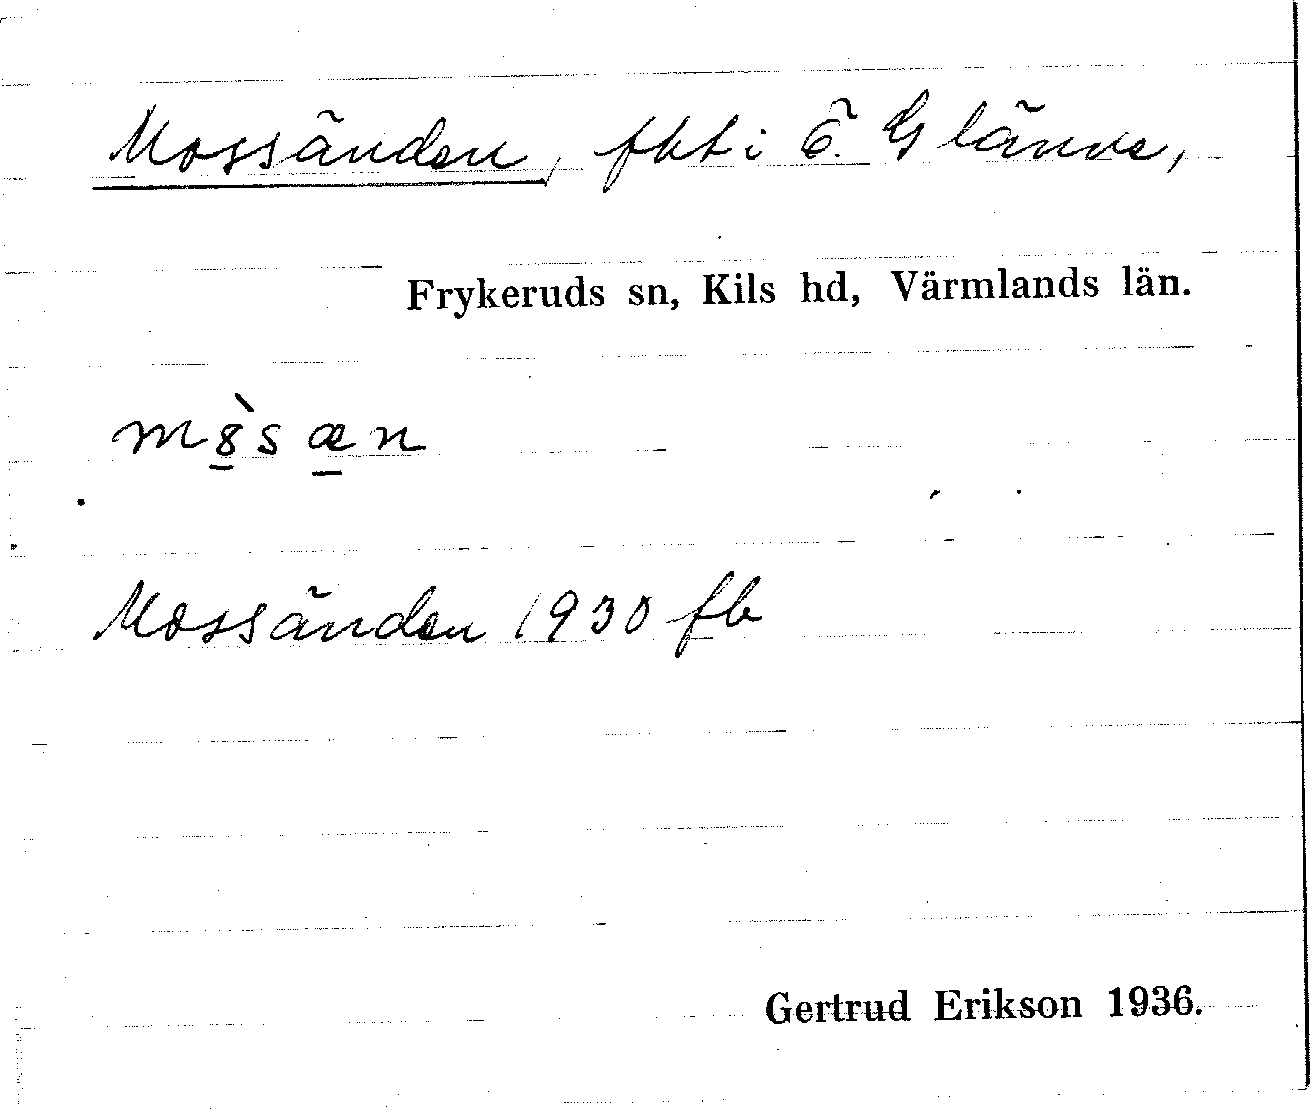 Mossänden, fkt i Ö. Glänne,
Frykeruds sn, Kils hd, Värmlands län.
m8̀sæn
Mossänden 1930 fb
Gertrud Erikson 1936.